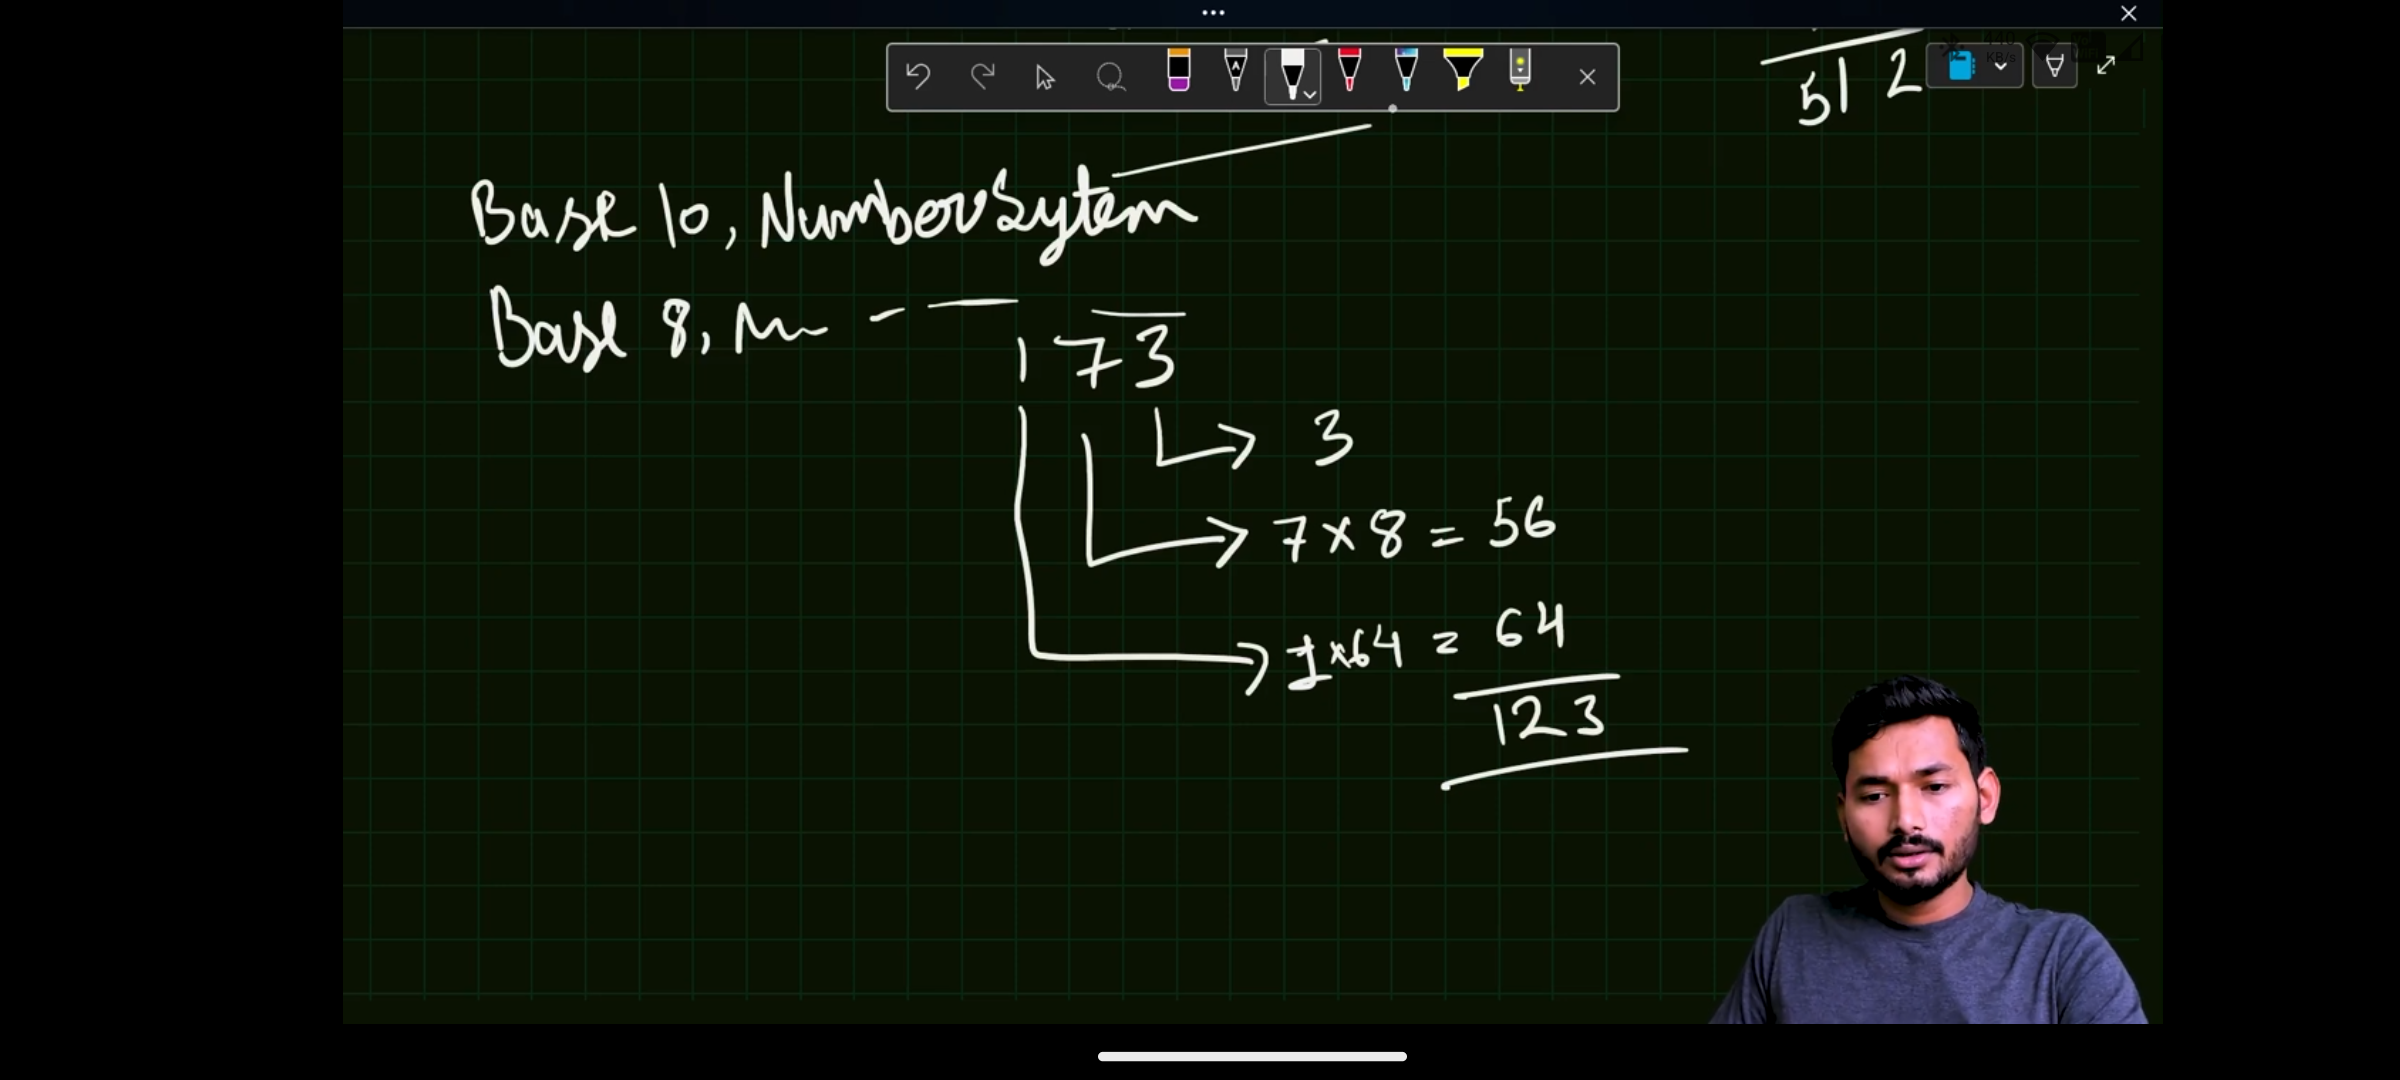 512
Base 10, Number Sytem
Base 8,
173
3
7 × 8 = 56
1 × 64 = 64
123